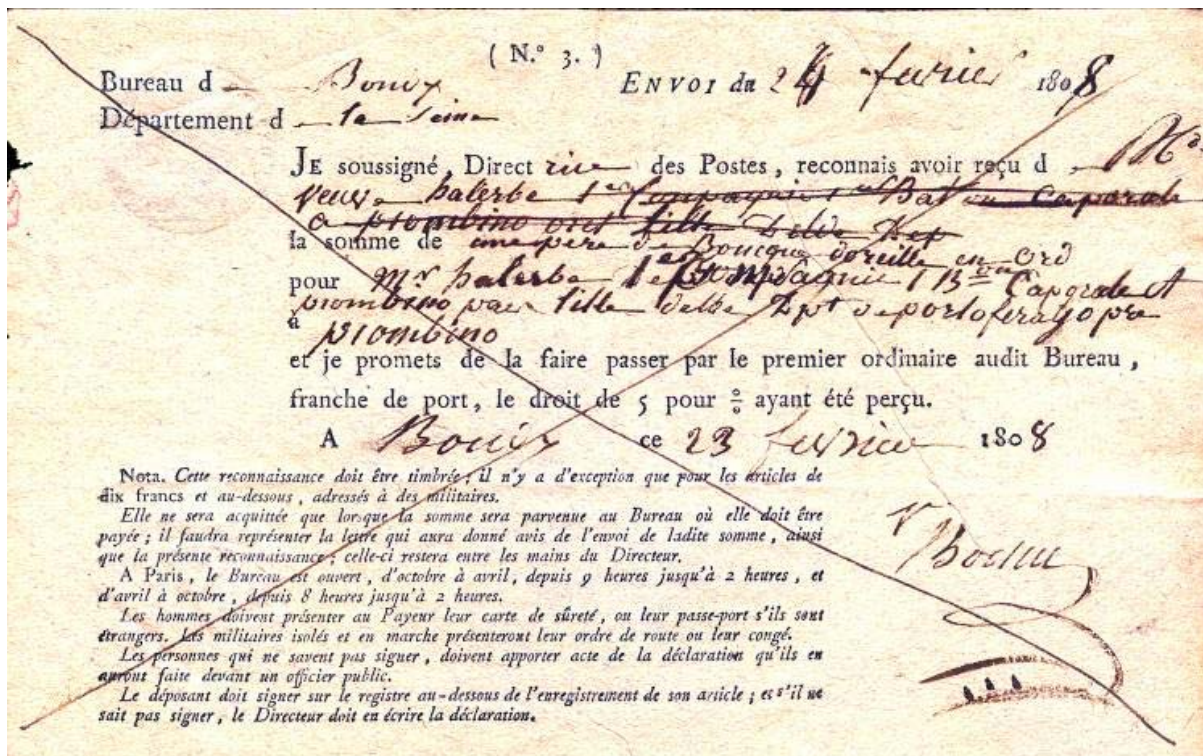 ( N.º 3. )
Bureau d
ENVOI du 24 fevrier 1808
Département d la Seine
JE soussigné, Directrice des Postes, reconnais avoir reçu d
veuve halerbe
a piombino
la somme de une pere de Boucque doreille en ord
pour Mr halerbe
piombino par lille delbe Dpt de portoferayo pre
à piombino
et je promets de la faire passer par le premier ordinaire audit Bureau,
franche de port, le droit de 5 pour % ayant été perçu.
A ce 23 fevrier 1808
Nota. Cette reconnaissance doit être timbrée ; il n'y a d'exception que pour les articles de
dix francs et au-dessous, adressés à des militaires.
Elle ne sera acquittée que lorsque la somme sera parvenue au Bureau où elle doit être
payée ; il faudra représenter la lettre qui aura donné avis de l'envoi de ladite somme, ainsi
que la présente reconnaissance ; celle-ci restera entre les mains du Directeur.
A Paris, le Bureau est ouvert, d'octobre à avril, depuis 9 heures jusqu'à 2 heures, et
d'avril à octobre, depuis 8 heures jusqu'à 2 heures.
Les hommes doivent présenter au Payeur leur carte de sûreté, ou leur passe-port s'ils sont
étrangers. Les militaires isolés et en marche présenteront leur ordre de route ou leur congé.
Les personnes qui ne savent pas signer, doivent apporter acte de la déclaration qu'ils en
auront faite devant un officier public.
Le déposant doit signer sur le registre au-dessous de l'enregistrement de son article ; et s'il ne
sait pas signer, le Directeur doit en écrire la déclaration.